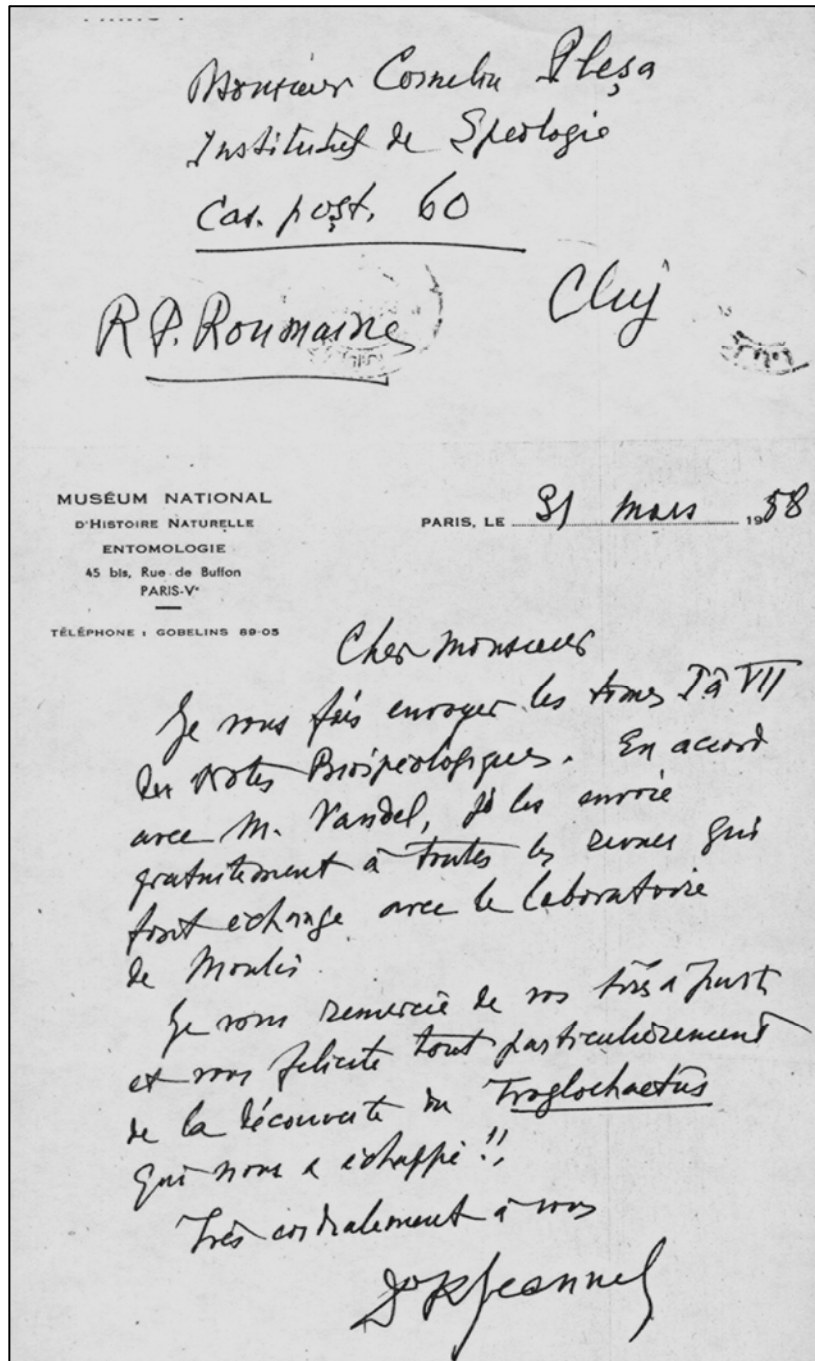 Monsieur Corneliu Pleşa
Institutul de Speologie
Cas. poşt. 60
R.P. Roumaine
Cluj
MUSÉUM NATIONAL
D'HISTOIRE NATURELLE
ENTOMOLOGIE
45 bis, Rue de Buffon
PARIS-Vᵉ
TÉLÉPHONE : GOBELINS 69-05
PARIS, LE 31 mars 1958
Cher Monsieur
Je vous fais envoyer les tomes I à VII
des Notes Biospéologiques. En accord
avec M. Vandel, je les envoie
gratuitement à toutes les revues qui
font échange avec le laboratoire
de Moulis
Je vous remercie de vos tirés à part
et vous felicite tout particulièrement
de la découverte du Troglochaetus
qui nous a échappé !!
Très cordialement à vous
Dr R Jeannel